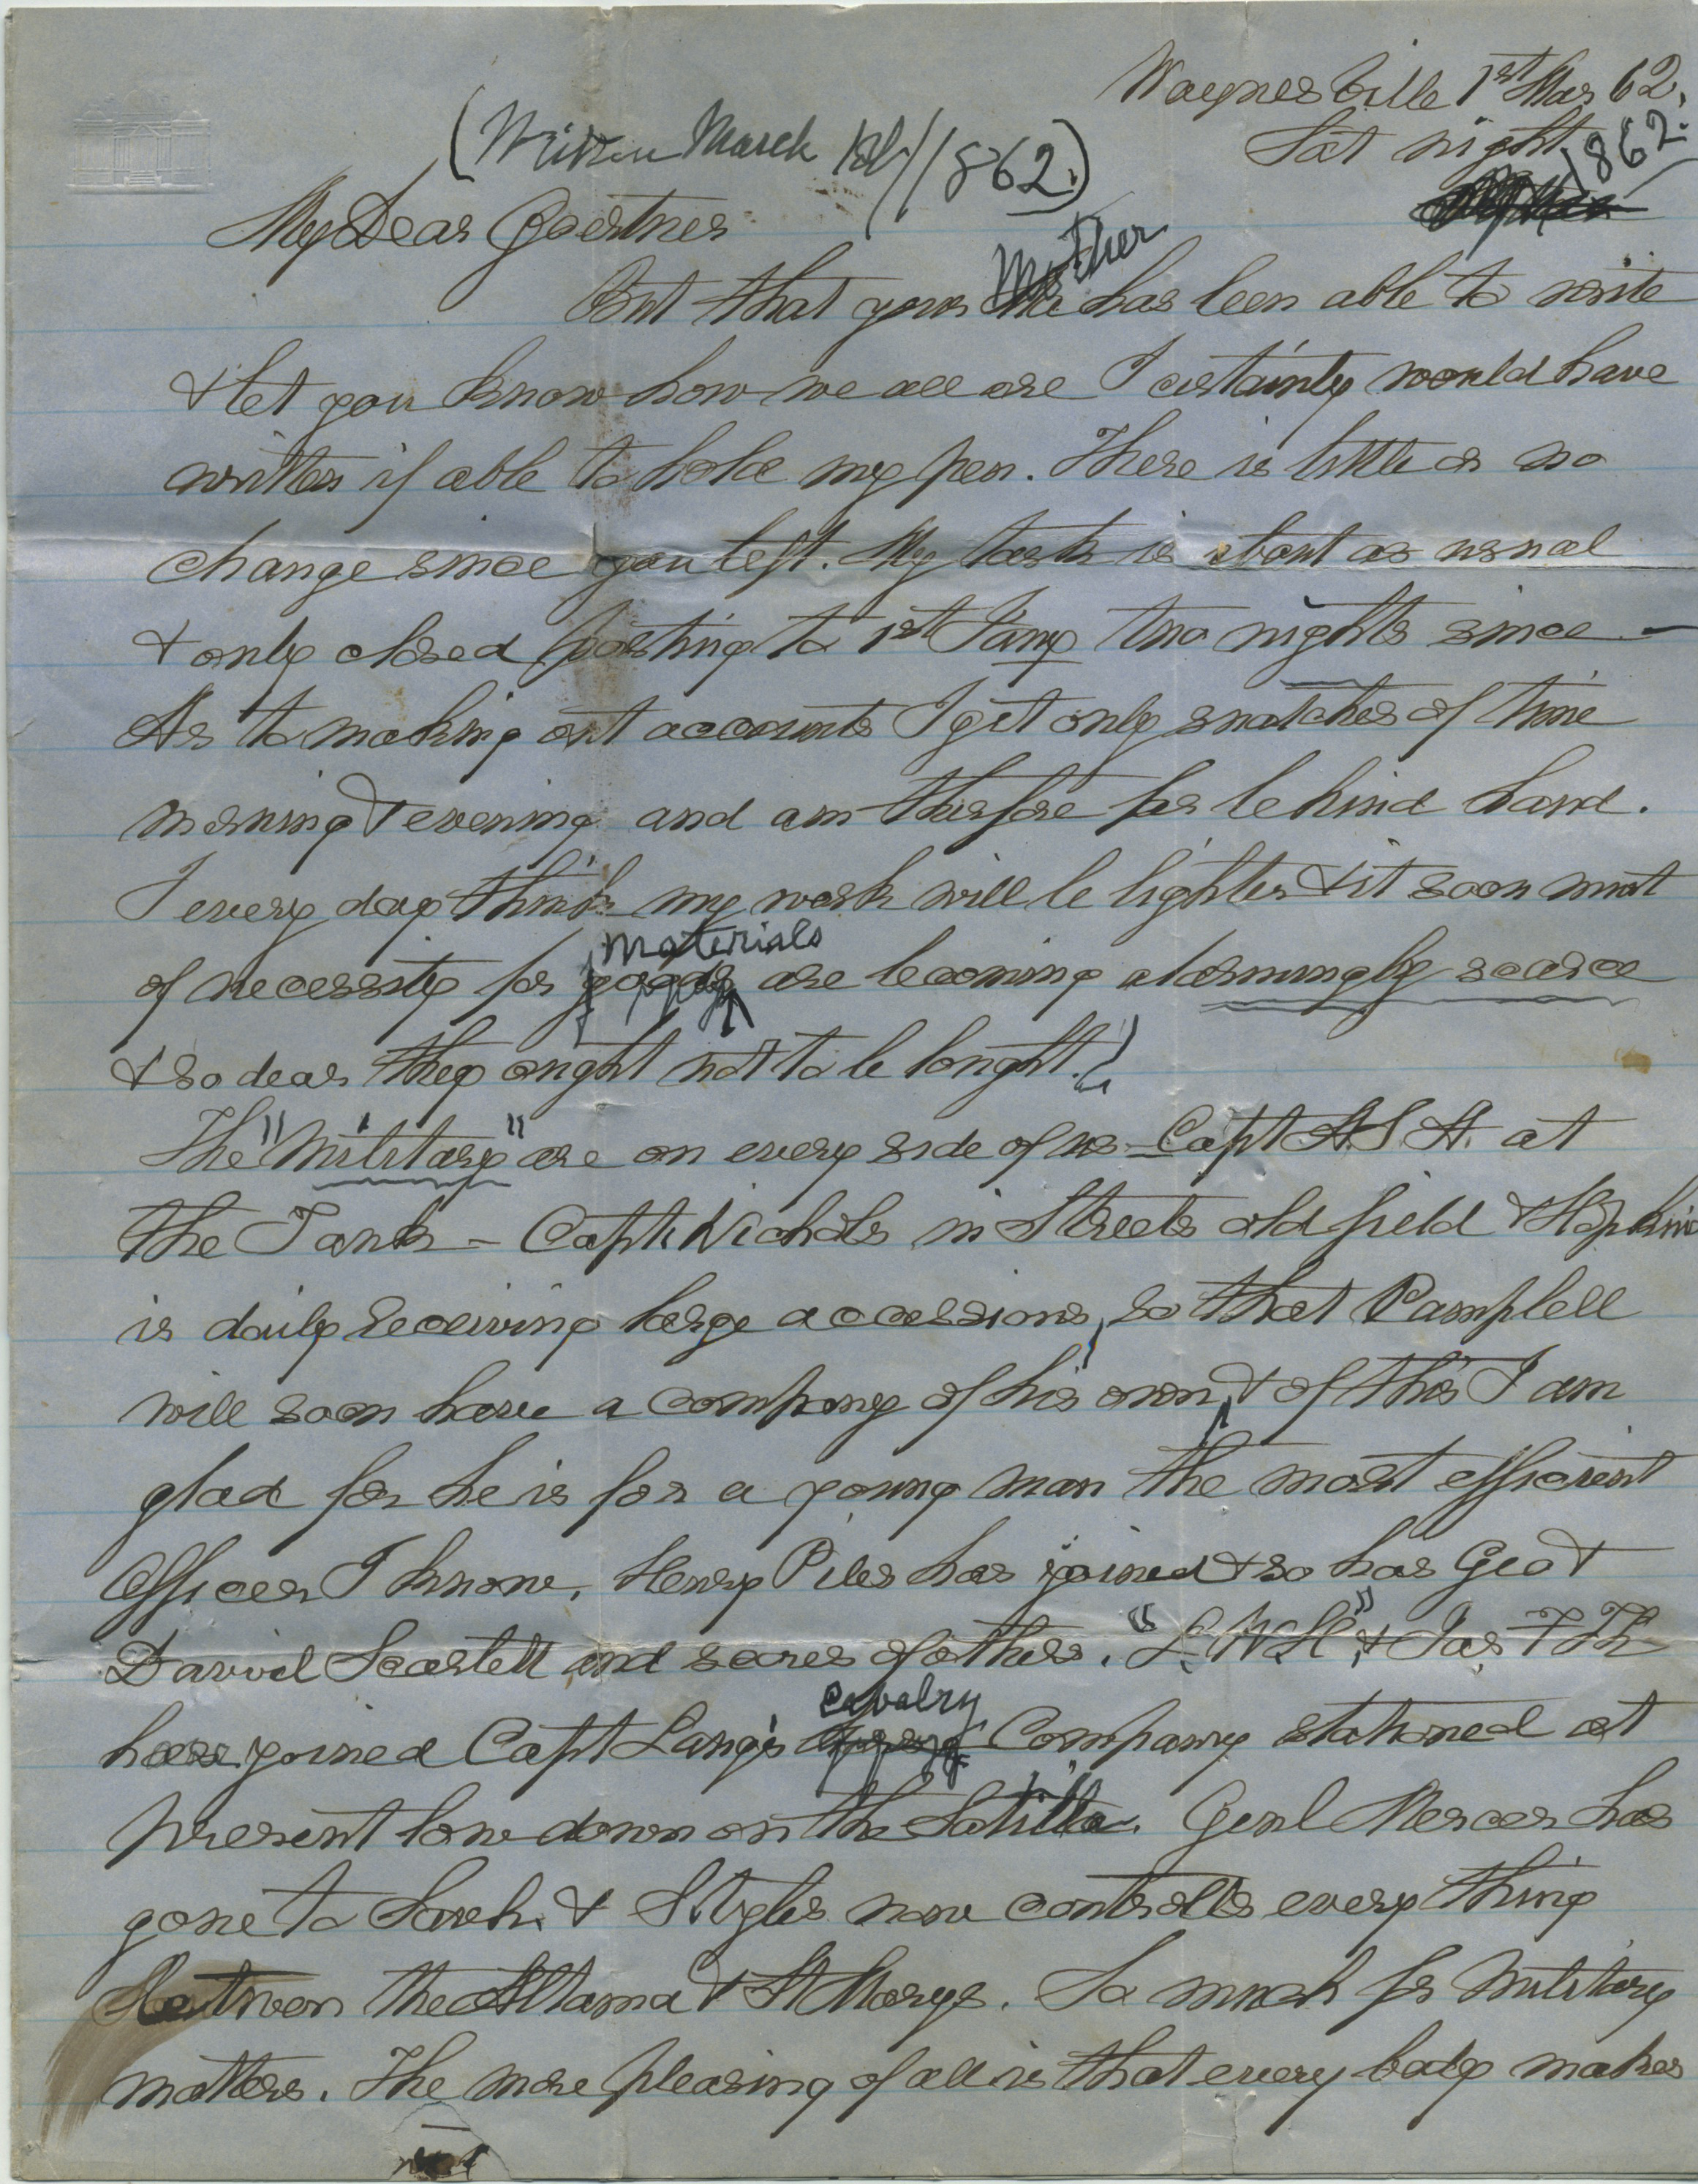 Waynesville 1st Mar 62.
(Written March 1st/1862.)
Sat night
1862.
My Dear Goertner
Mother
But that your has been able to write
& let you know how we all are I certainly would have
written if able to hold my pen. There is little or no
change since you left. My task is about as usual
& only closed posting to 1st Jany two nights since –
As to making out accounts I get only snatches of time
morning & evening and am therfore far behind hand.
I every day think my work will be lighter & it soon must
materials
of necessity for goods are becoming alarmingly scarce
& so dear they ought not to be bought.!
The "Military" are on every side of us – Capt A.S.A. at
the Tank – Capt Nichols in Streets old field & Hopkins
is daily receiving large accessions, so that Pamplell
will soon have a company of his own, & of this I am
glad for he is for a young man the most efficient
Officer I know. Henry Piles has joined & so has Geo &
David Scarlett and scores of others. "L.W.H", & Jas T
cavalry
have joined Capt Lang's Company stationed at
present low down on the Satilla. Genl Mercer has
gone to Savh. & Styles now controlls every thing
Between the Altama & St Marys. So much for Military
matters. The more pleasing of all is that every body makes